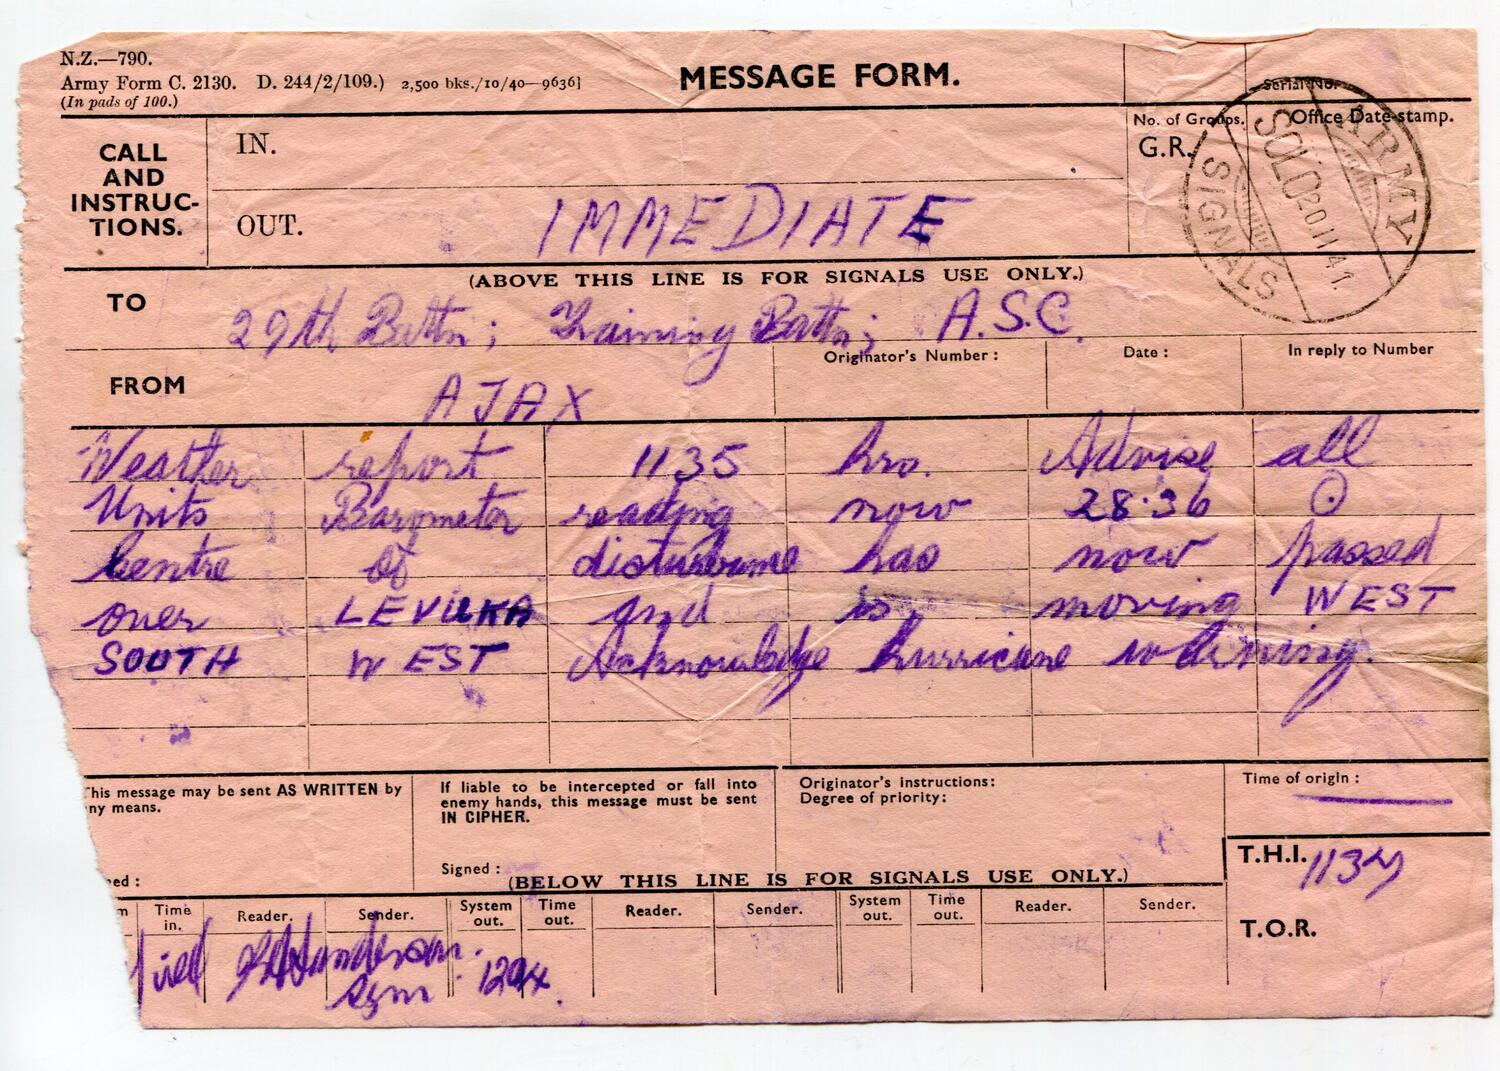 N.Z.—790.
Army Form C. 2130. D. 244/2/109.) 2,500 bks./10/40—9636]
(In pads of 100.)
MESSAGE FORM.
Serial No.
CALL AND INSTRUC-TIONS.
IN.
No. of Groups.
G.R.
Office Date-stamp.
ARMY SIGNALS
20.11.41.
OUT. IMMEDIATE
(ABOVE THIS LINE IS FOR SIGNALS USE ONLY.)
TO 29th Battn; Training Battn; A.S.C.
FROM AJAX
Originator's Number :
Date :
In reply to Number
Weather report 1135 hrs. Advise all
Units Barometer reading now 28.36 ⊙
Centre of disturbance has now passed
over LEVUKA and is moving WEST
SOUTH WEST Acknowledge hurricane warning.
his message may be sent AS WRITTEN by
ny means.
ed :
If liable to be intercepted or fall into
enemy hands, this message must be sent
IN CIPHER.
Signed :
Originator's instructions:
Degree of priority:
Time of origin :
(BELOW THIS LINE IS FOR SIGNALS USE ONLY.)
T.H.I.
T.O.R.
m
Time in.
Reader.
Sender.
System out.
Time out.
Reader.
Sender.
System out.
Time out.
Reader.
Sender.